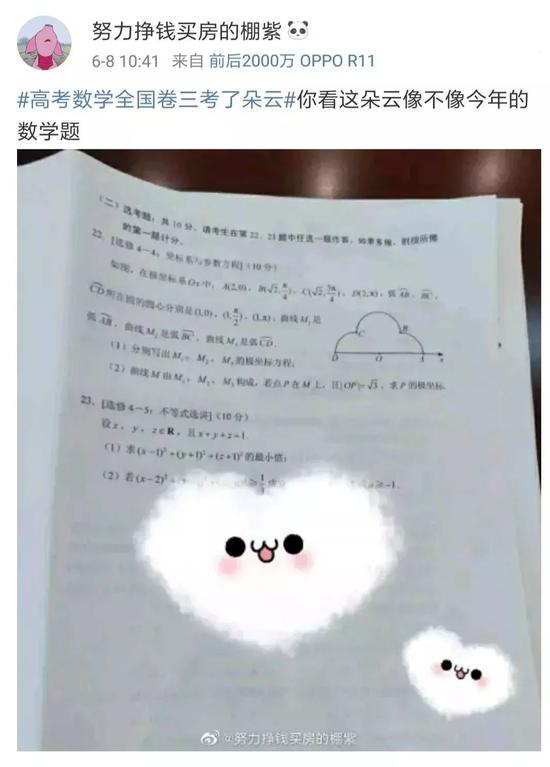 努力挣钱买房的棚紫🐼
6-8 10:41 来自 前后2000万 OPPO R11
#高考数学全国卷三考了朵云#你看这朵云像不像今年的
数学题
(二) 选考题：共 10 分. 请考生在第 22、23 题中任选一题作答. 如果多做，则按所做
的第一题计分.
22. [选修 4—4：坐标系与参数方程] (10 分)
如图，在极坐标系 Ox 中，A(2,0)，B(√2,π/4)，C(√2,3π/4)，D(2,π)，弧 AB，BC，
CD 所在圆的圆心分别是(1,0)，(1,π/2)，(1,π)，曲线 M₁ 是
弧 AB，曲线 M₂ 是弧 BC，曲线 M₃ 是弧 CD.
C B
D O A x
(1) 分别写出 M₁，M₂，M₃ 的极坐标方程；
(2) 曲线 M 由 M₁，M₂，M₃ 构成，若点 P 在 M 上，且|OP|=√3，求 P 的极坐标.
23. [选修 4—5：不等式选讲] (10 分)
设 x，y，z∈R，且 x+y+z=1.
(1) 求 (x-1)²+(y+1)²+(z+1)² 的最小值；
(2) 若 (x-2)²+ ≥1/3 ≥-1.
@努力挣钱买房的棚紫